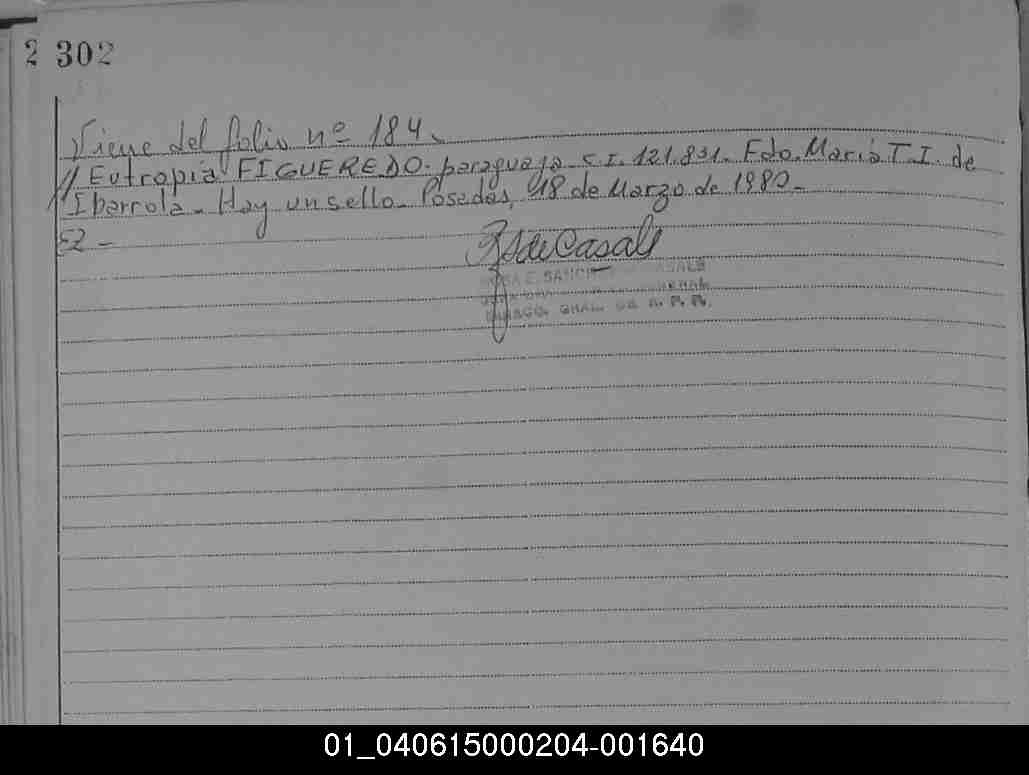 2 302
Viene del folio nº 184.
// Eutropia FIGUEREDO. paraguaya C.I. 121.831. Fdo. María T. I. de
Ibarrola. Hay un sello. Posadas, 18 de Marzo de 1980.-
EZ -
de Casals
ROSA E. SANCH CASALS
GRAL. DE R. P. P.
01_040615000204-001640